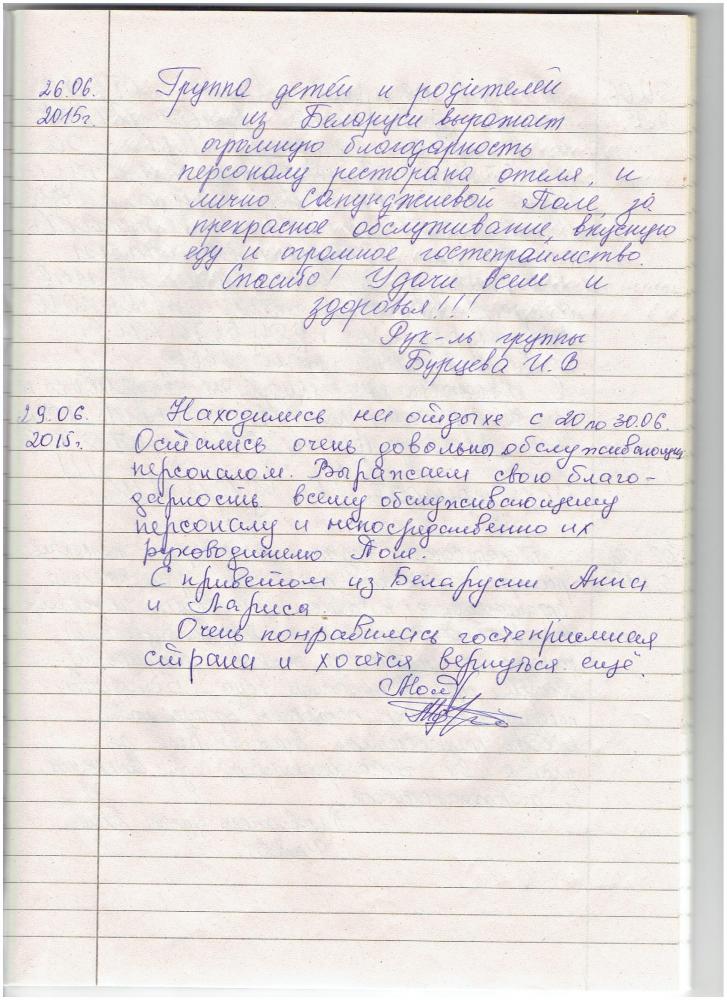 26.06.
2015г.
Группа детей и родителей
из Беларуси выражает
огромную благодарность
персоналу ресторана отеля, и
лично Сапунджиевой Поле, за
прекрасное обслуживание, вкусную
еду и огромное гостеприимство.
Спасибо! Удачи всем и
здоровья!!!
Рук-ль группы
Бурцева И.В.
29.06.
2015г.
Находились на отдыхе с 20 по 30.06.
Остались очень довольны обслуживающим
персоналом. Выражаем свою благо-
дарность всему обслуживающему
персоналу и непосредственно их
руководителю Поле.
С приветом из Беларусии Анна
и Лариса.
Очень понравилась гостеприимная
страна и хочется вернуться ещё.